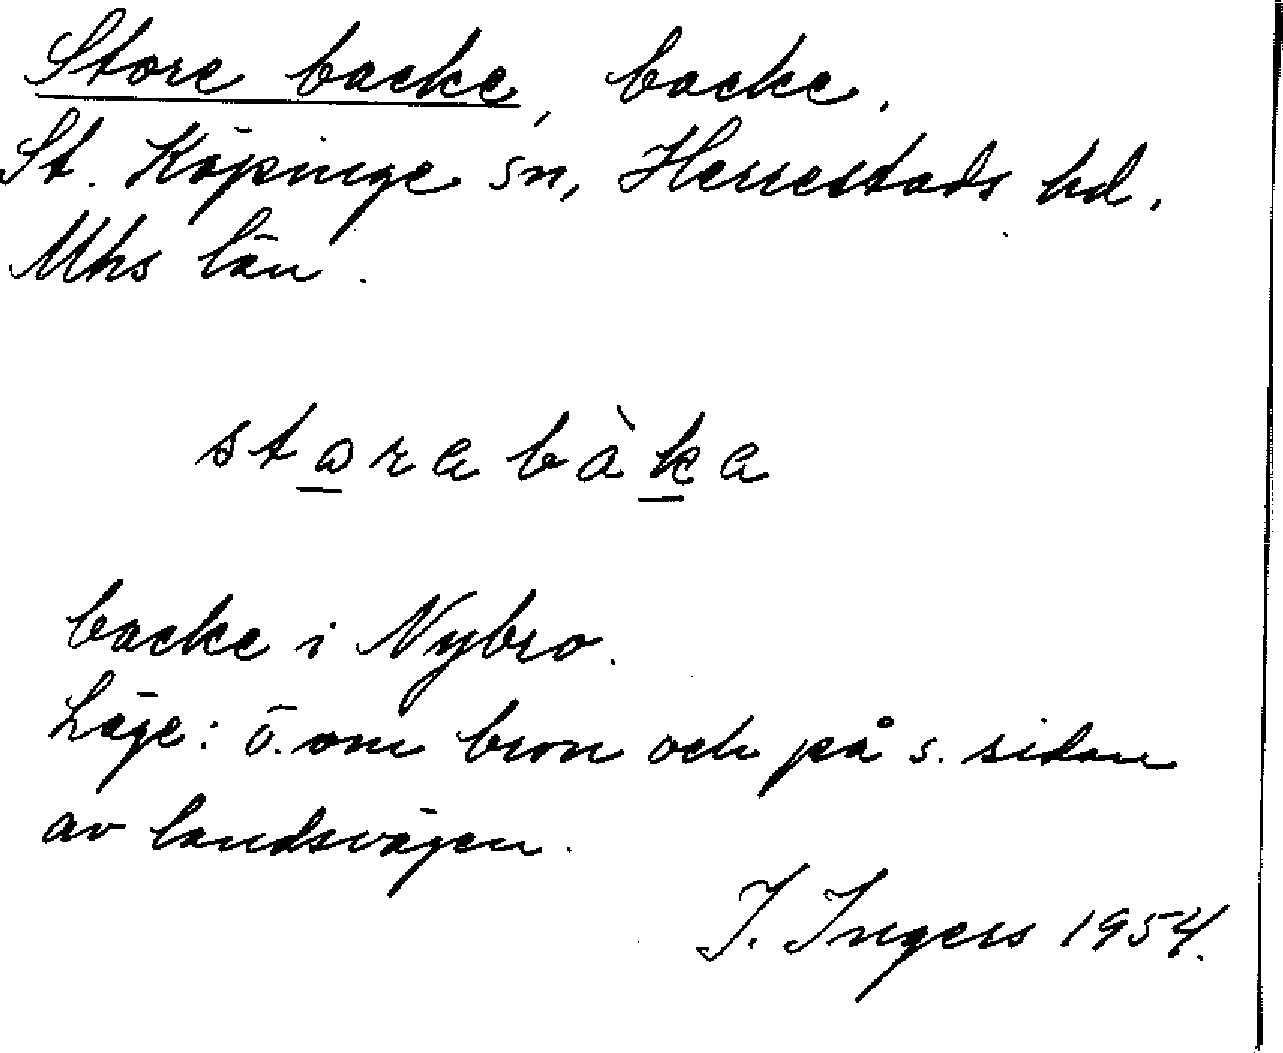 Store backe, backe.
St. Köpinge sn, Herrestads hd.
Mhs län.
storabàka
backe i Nybro.
Läge: ö. om bron och på s. sidan
av landsvägen.
I. Ingers 1954.